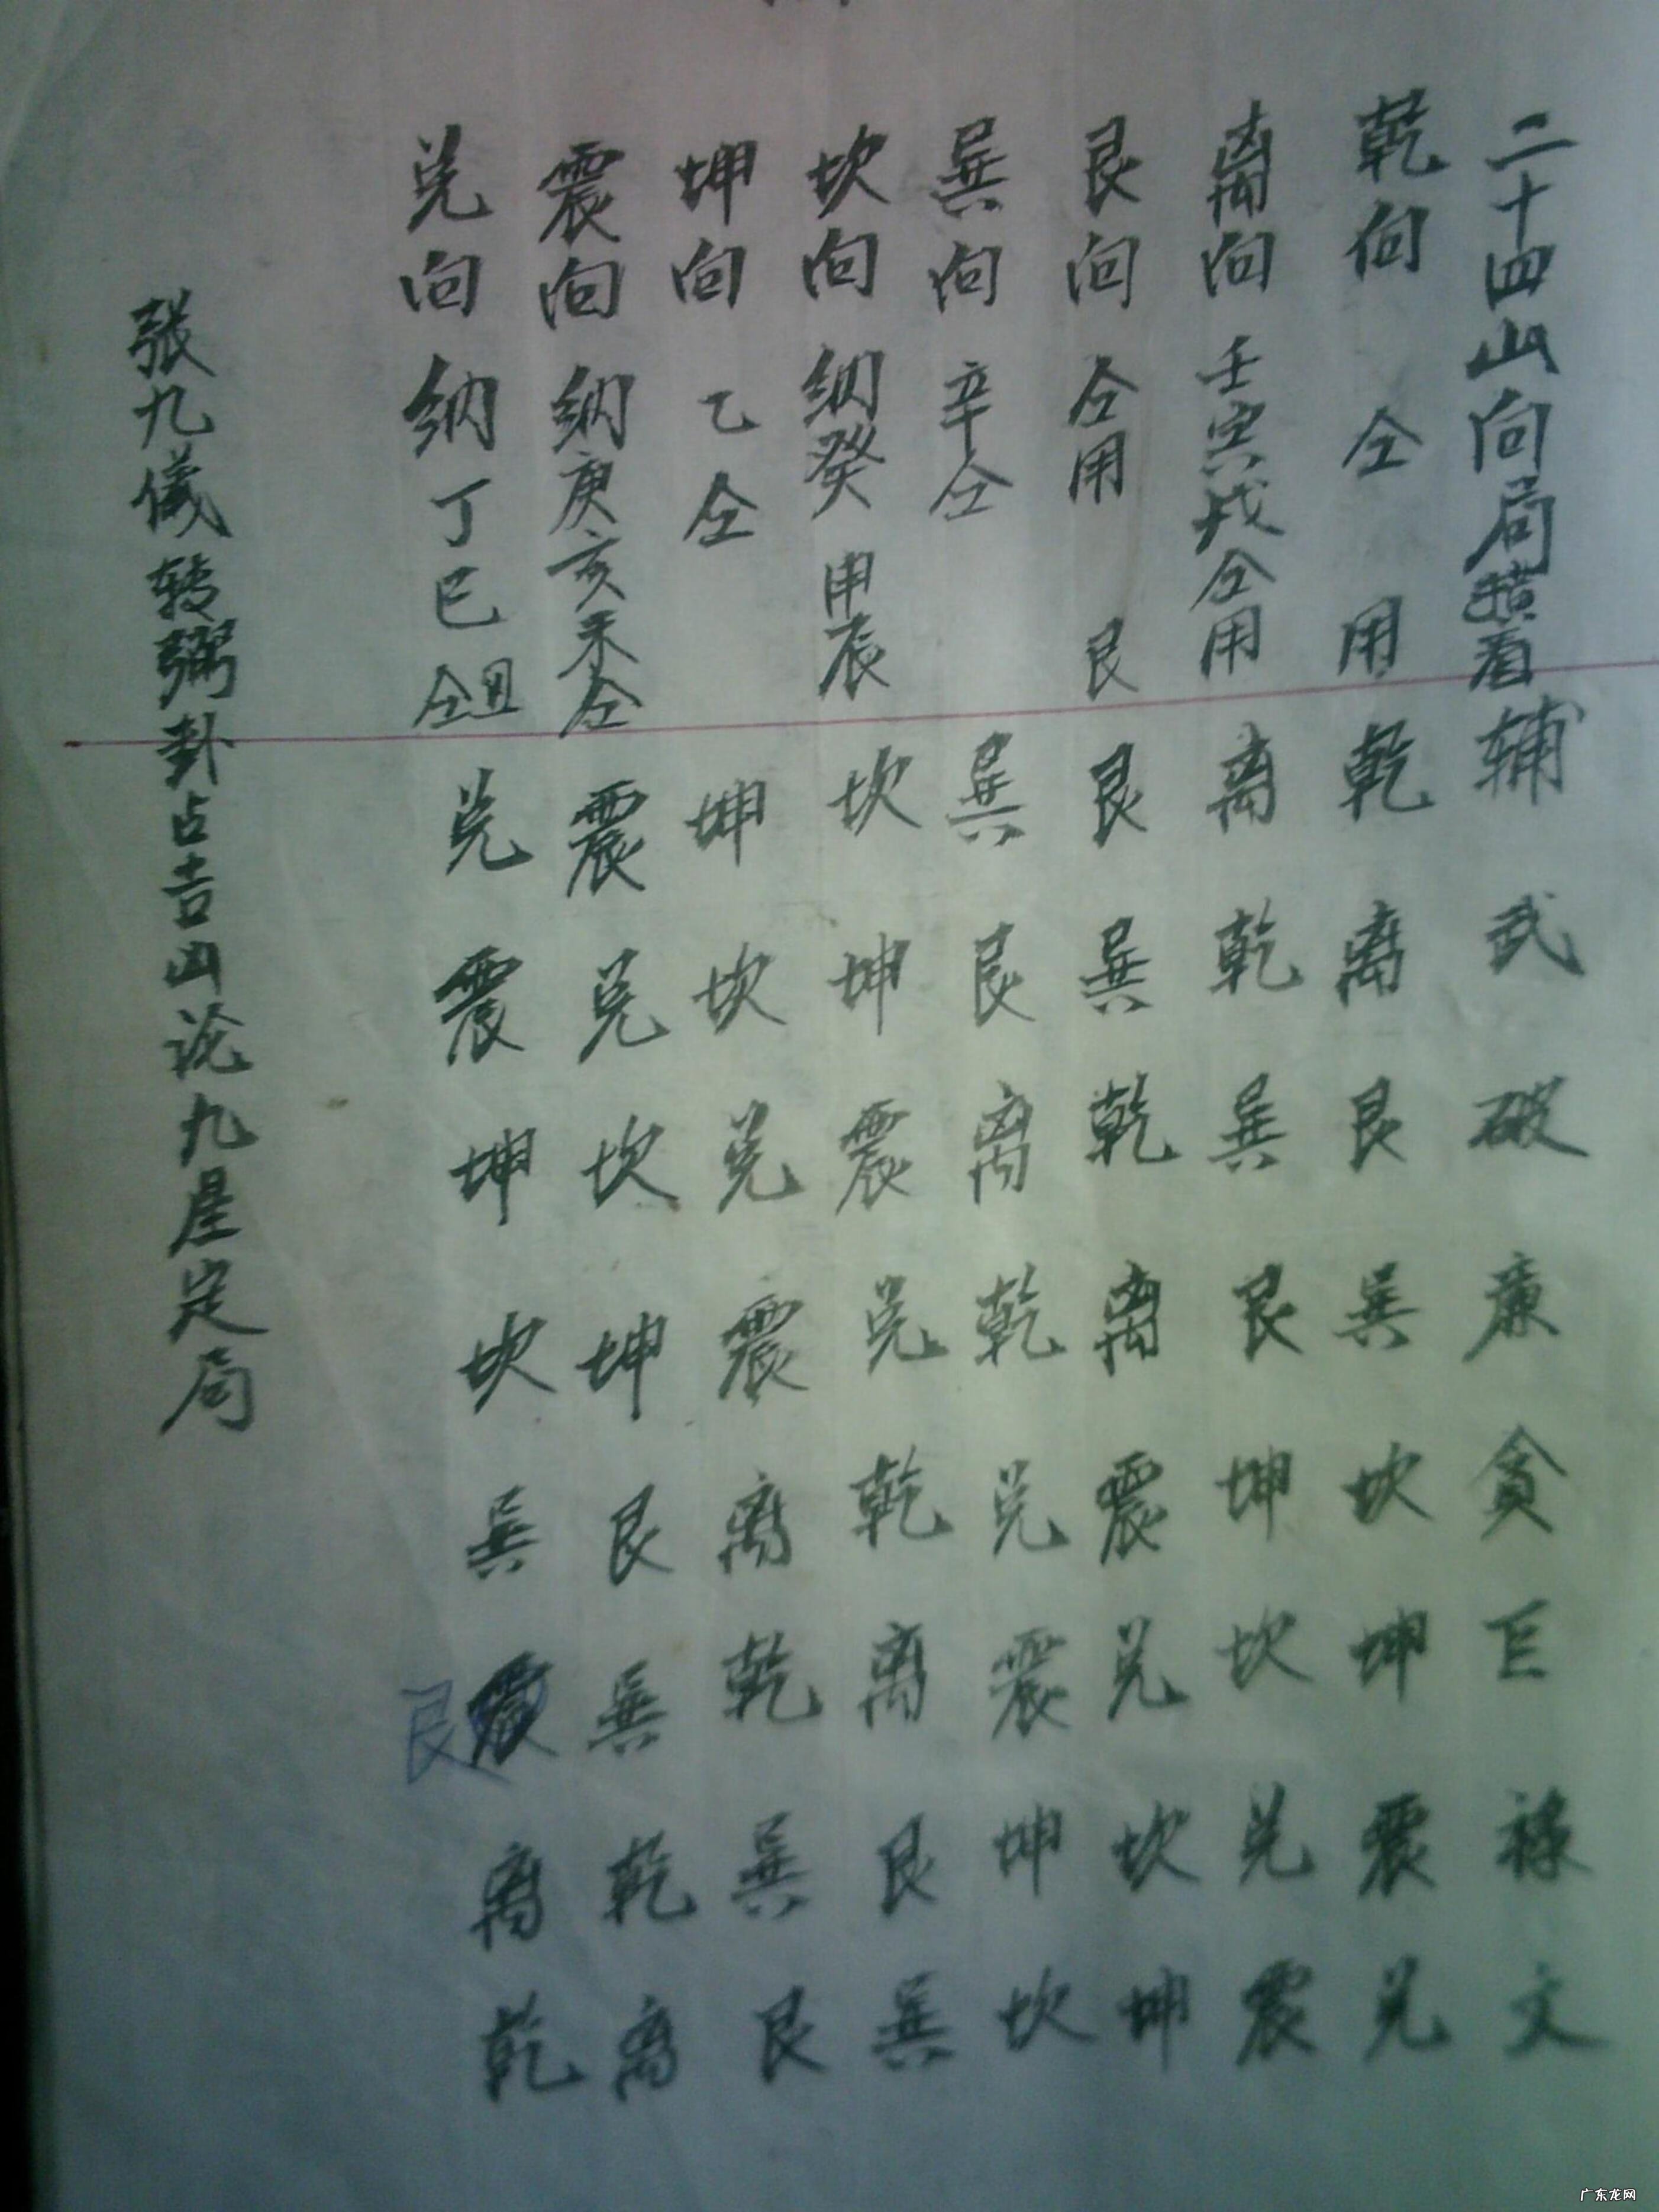 二十四山向局横看辅武破廉贪巨禄文
乾向仝用乾离艮巽坎坤震兑
离向壬寅戌仝用离乾巽艮坤坎兑震
艮向仝用艮艮巽乾离震兑坎坤
巽向辛仝巽艮离乾兑震坤坎
坎向纳癸申辰坎坤震兑乾离艮巽
坤向乙仝坤坎兑震离乾巽艮
震向纳庚亥未仝震兑坎坤艮巽乾离
兑向纳丁巳仝丑兑震坤坎巽震离乾
艮
张九儀转弼卦占吉凶论九星定局
广东龙网